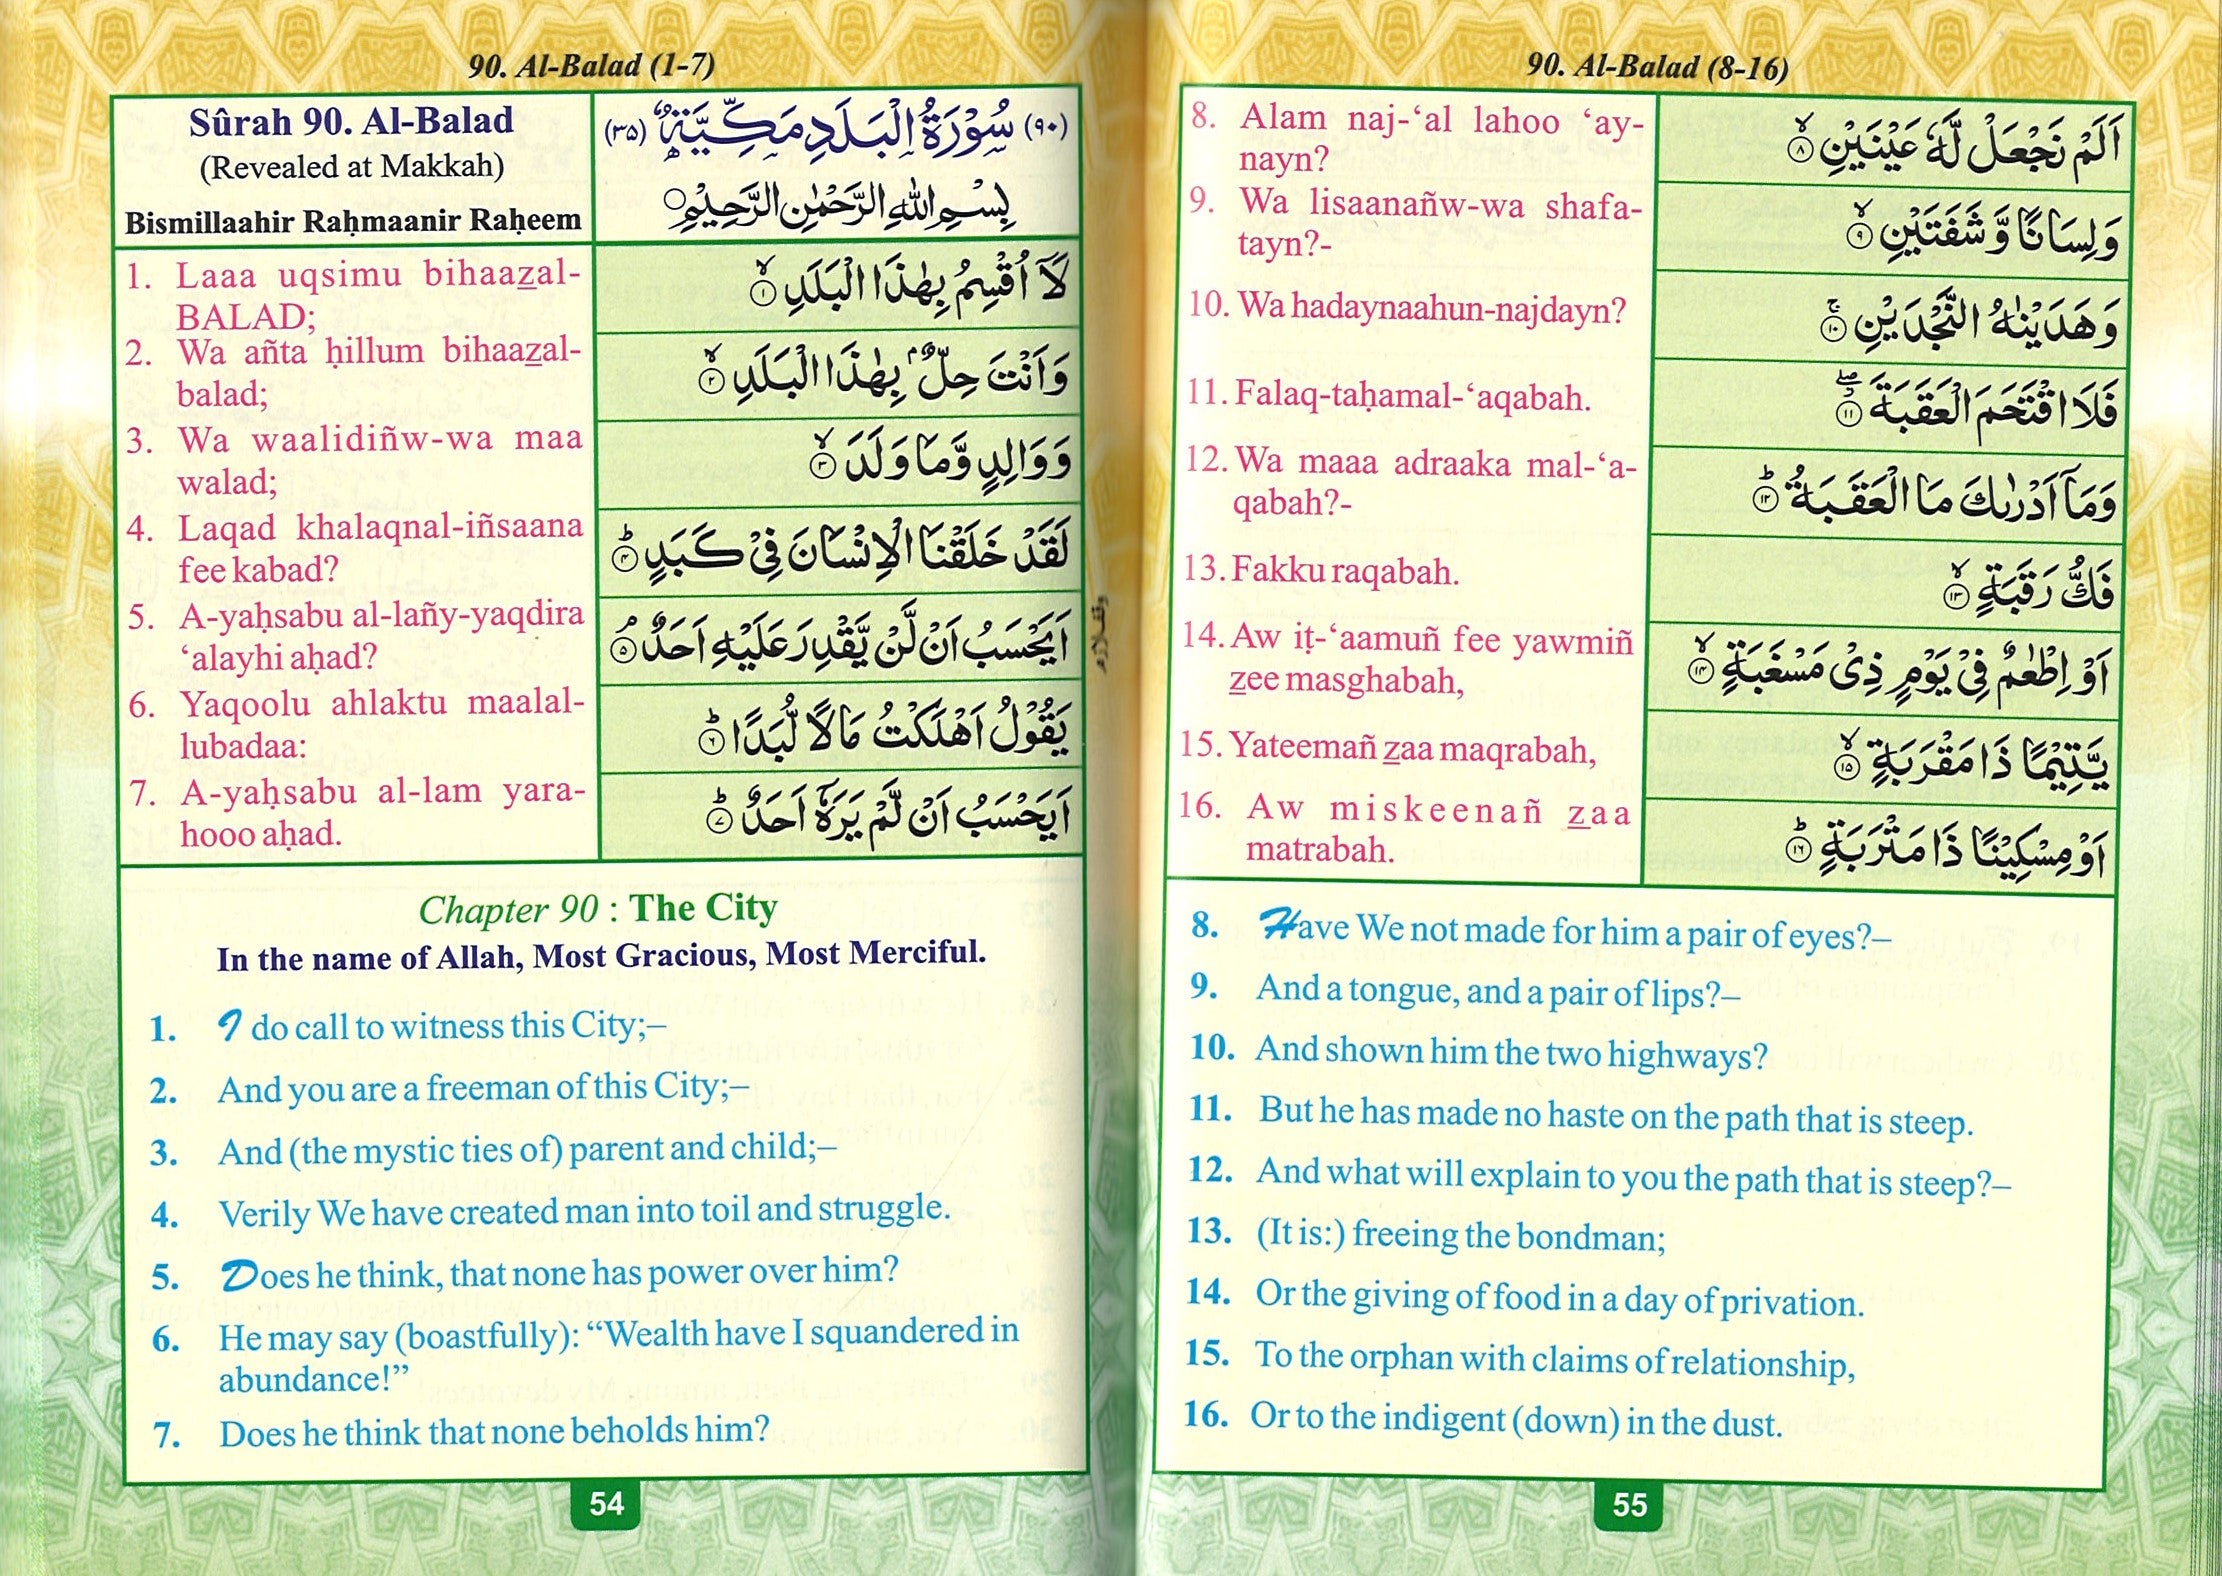 90. Al-Balad (1-7)
Sûrah 90. Al-Balad
(Revealed at Makkah)
Bismillaahir Raḥmaanir Raḥeem
(٩٠) سُوْرَةُ الْبَلَدِ مَكِّيَّةٌ (٣٥)
بِسْمِ اللّٰهِ الرَّحْمٰنِ الرَّحِيْمِ
1. Laaa uqsimu bihaaz̲al-
BALAD;
لَآ اُقْسِمُ بِهٰذَا الْبَلَدِ ۙ ١
2. Wa añta ḥillum bihaaz̲al-
balad;
وَاَنْتَ حِلٌّۢ بِهٰذَا الْبَلَدِ ۙ ٢
3. Wa waalidiñw-wa maa
walad;
وَوَالِدٍ وَّمَا وَلَدَ ۙ ٣
4. Laqad khalaqnal-iñsaana
fee kabad?
لَقَدْ خَلَقْنَا الْاِنْسَانَ فِيْ كَبَدٍ ؕ ٤
5. A-yaḥsabu al-lañy-yaqdira
‘alayhi aḥad?
اَيَحْسَبُ اَنْ لَّنْ يَّقْدِرَ عَلَيْهِ اَحَدٌ ۘ ٥
وقف لازم
6. Yaqoolu ahlaktu maalal-
lubadaa:
يَقُوْلُ اَهْلَكْتُ مَالًا لُّبَدًا ؕ ٦
7. A-yaḥsabu al-lam yara-
hooo aḥad.
اَيَحْسَبُ اَنْ لَّمْ يَرَهٗٓ اَحَدٌ ؕ ٧
Chapter 90 : The City
In the name of Allah, Most Gracious, Most Merciful.
1. I do call to witness this City;–
2. And you are a freeman of this City;–
3. And (the mystic ties of) parent and child;–
4. Verily We have created man into toil and struggle.
5. Does he think, that none has power over him?
6. He may say (boastfully): “Wealth have I squandered in
abundance!”
7. Does he think that none beholds him?
54
90. Al-Balad (8-16)
8. Alam naj-‘al lahoo ‘ay-
nayn?
اَلَمْ نَجْعَلْ لَّهٗ عَيْنَيْنِ ۙ ٨
9. Wa lisaanañw-wa shafa-
tayn?-
وَلِسَانًا وَّشَفَتَيْنِ ۙ ٩
10. Wa hadaynaahun-najdayn?
وَهَدَيْنٰهُ النَّجْدَيْنِ ۚ ١٠
11. Falaq-taḥamal-‘aqabah.
فَلَا اقْتَحَمَ الْعَقَبَةَ ۖ ١١
12. Wa maaa adraaka mal-‘a-
qabah?-
وَمَآ اَدْرٰىكَ مَا الْعَقَبَةُ ؕ ١٢
13. Fakku raqabah.
فَكُّ رَقَبَةٍ ۙ ١٣
14. Aw iṭ-‘aamuñ fee yawmiñ
z̲ee masghabah,
اَوْ اِطْعٰمٌ فِيْ يَوْمٍ ذِيْ مَسْغَبَةٍ ۙ ١٤
15. Yateemañ z̲aa maqrabah,
يَّتِيْمًا ذَا مَقْرَبَةٍ ۙ ١٥
16. Aw miskeenañ z̲aa
matrabah.
اَوْ مِسْكِيْنًا ذَا مَتْرَبَةٍ ؕ ١٦
8. Have We not made for him a pair of eyes?–
9. And a tongue, and a pair of lips?–
10. And shown him the two highways?
11. But he has made no haste on the path that is steep.
12. And what will explain to you the path that is steep?–
13. (It is:) freeing the bondman;
14. Or the giving of food in a day of privation.
15. To the orphan with claims of relationship,
16. Or to the indigent (down) in the dust.
55